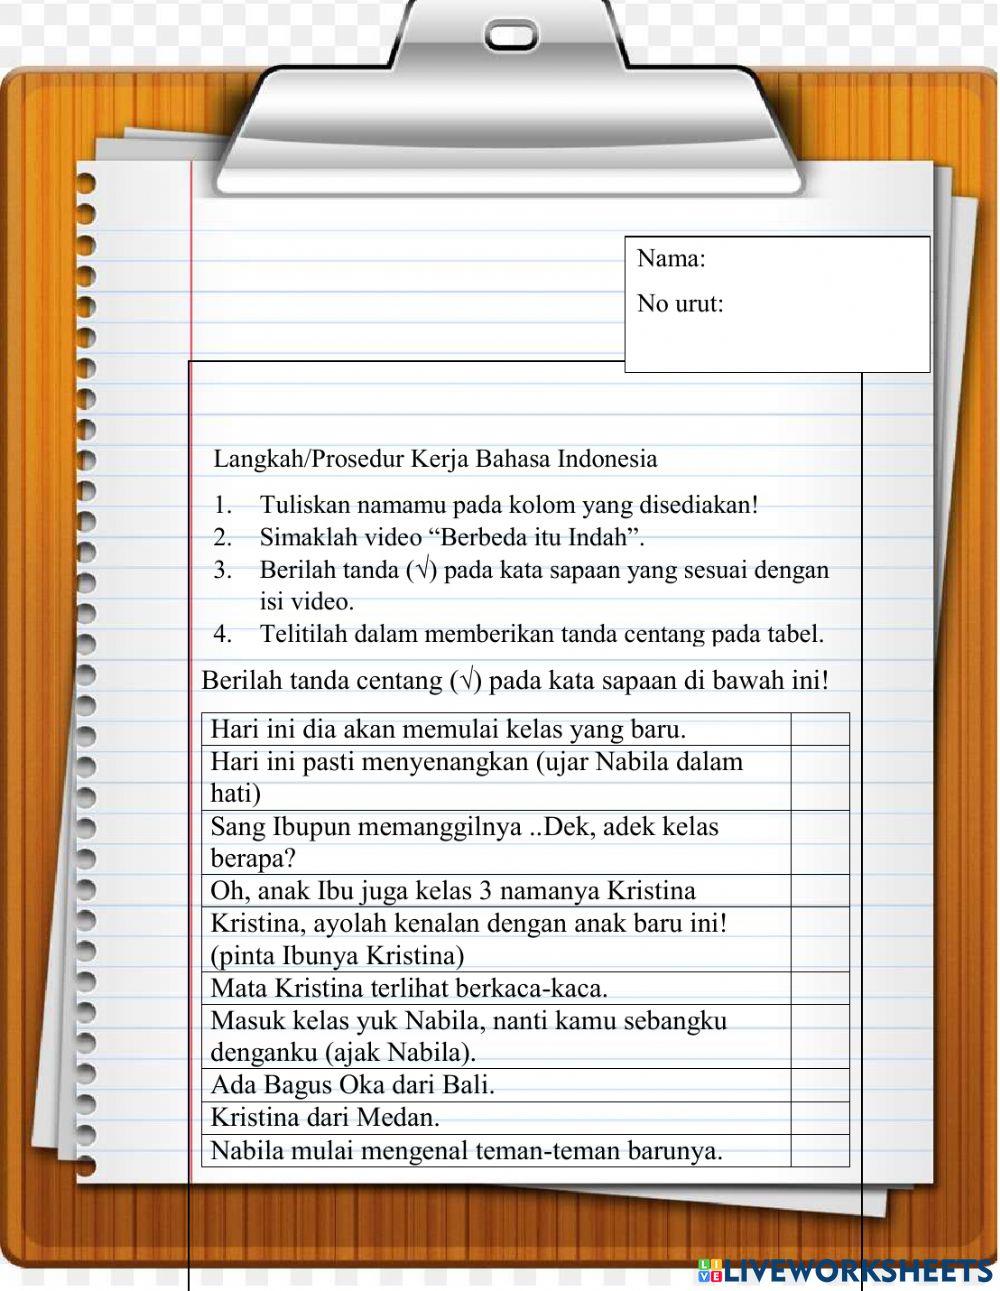 Nama:
No urut:
Langkah/Prosedur Kerja Bahasa Indonesia
1. Tuliskan namamu pada kolom yang disediakan!
2. Simaklah video “Berbeda itu Indah”.
3. Berilah tanda (√) pada kata sapaan yang sesuai dengan
isi video.
4. Telitilah dalam memberikan tanda centang pada tabel.
Berilah tanda centang (√) pada kata sapaan di bawah ini!
Hari ini dia akan memulai kelas yang baru.
Hari ini pasti menyenangkan (ujar Nabila dalam
hati)
Sang Ibupun memanggilnya ..Dek, adek kelas
berapa?
Oh, anak Ibu juga kelas 3 namanya Kristina
Kristina, ayolah kenalan dengan anak baru ini!
(pinta Ibunya Kristina)
Mata Kristina terlihat berkaca-kaca.
Masuk kelas yuk Nabila, nanti kamu sebangku
denganku (ajak Nabila).
Ada Bagus Oka dari Bali.
Kristina dari Medan.
Nabila mulai mengenal teman-teman barunya.
LIVE LIVEWORKSHEETS